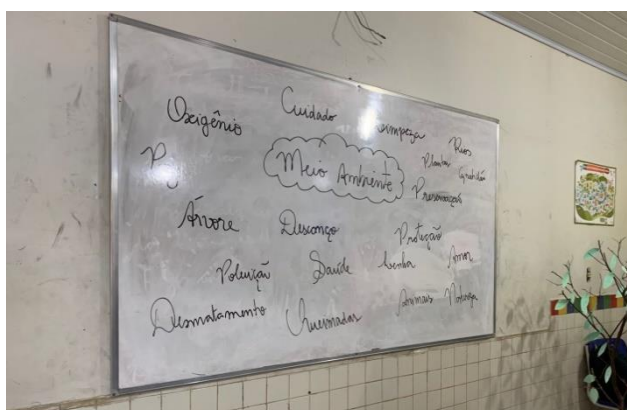 Oxigênio Cuidado Limpeza Rios
Plantas Gratidão
Meio Ambiente Preservação
Árvore Descanço Proteção
Poluição Saúde Lenha Amor
Desmatamento Queimadas Animais